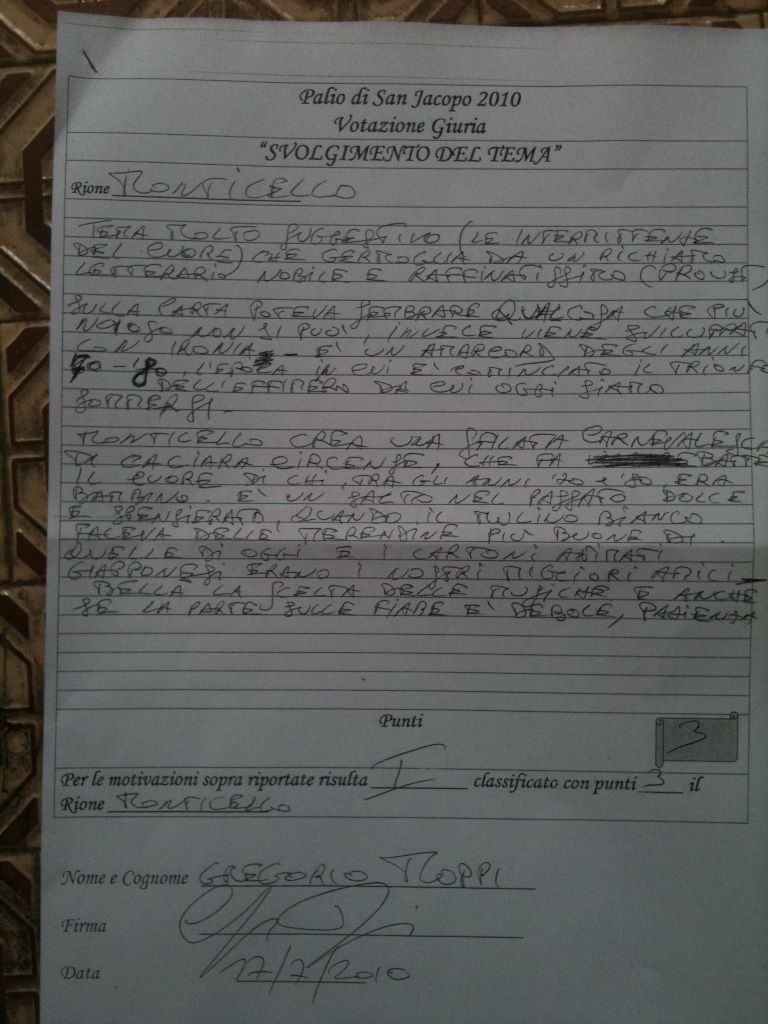 Palio di San Jacopo 2010
Votazione Giuria
"SVOLGIMENTO DEL TEMA"
Rione MONTICELLO
TEMA MOLTO SUGGESTIVO (LE INTERMITTENZE
DEL CUORE) CHE GERMOGLIA DA UN RICHIAMO
LETTERARIO NOBILE E RAFFINATISSIMO (PROUST)
SULLA CARTA POTEVA SEMBRARE QUALCOSA CHE PIU'
NOIOSO NON SI PUO', INVECE VIENE SVILUPPATO
CON IRONIA - E' UN AMARCORD DEGLI ANNI
70-'80, L'EPOCA IN CUI E' COMINCIATO IL TRIONFO
DELL'EFFIMERO DA CUI OGGI SIAMO
SOMMERSI.
MONTICELLO CREA UNA SFILATA CARNEVALESCA
DI CACIARA CIRCENSE, CHE FA BATTERE
IL CUORE DI CHI, TRA GLI ANNI '70 e '80 ERA
BAMBINO. E' UN SALTO NEL PASSATO DOLCE
E SPENSIERATO, QUANDO IL MULINO BIANCO
FACEVA DELLE MERENDINE PIÙ BUONE DI
QUELLE DI OGGI E I CARTONI ANIMATI
GIAPPONESI ERANO I NOSTRI MIGLIORI AMICI.
BELLA LA SCELTA DELLE MUSICHE E ANCHE
SE LA PARTE SULLE FIABE E' DEBOLE, PAZIENZA
Punti
3
Per le motivazioni sopra riportate risulta I classificato con punti 3 il
Rione MONTICELLO
Nome e Cognome GREGORIO MOPPI
Firma
Data 17/7/2010